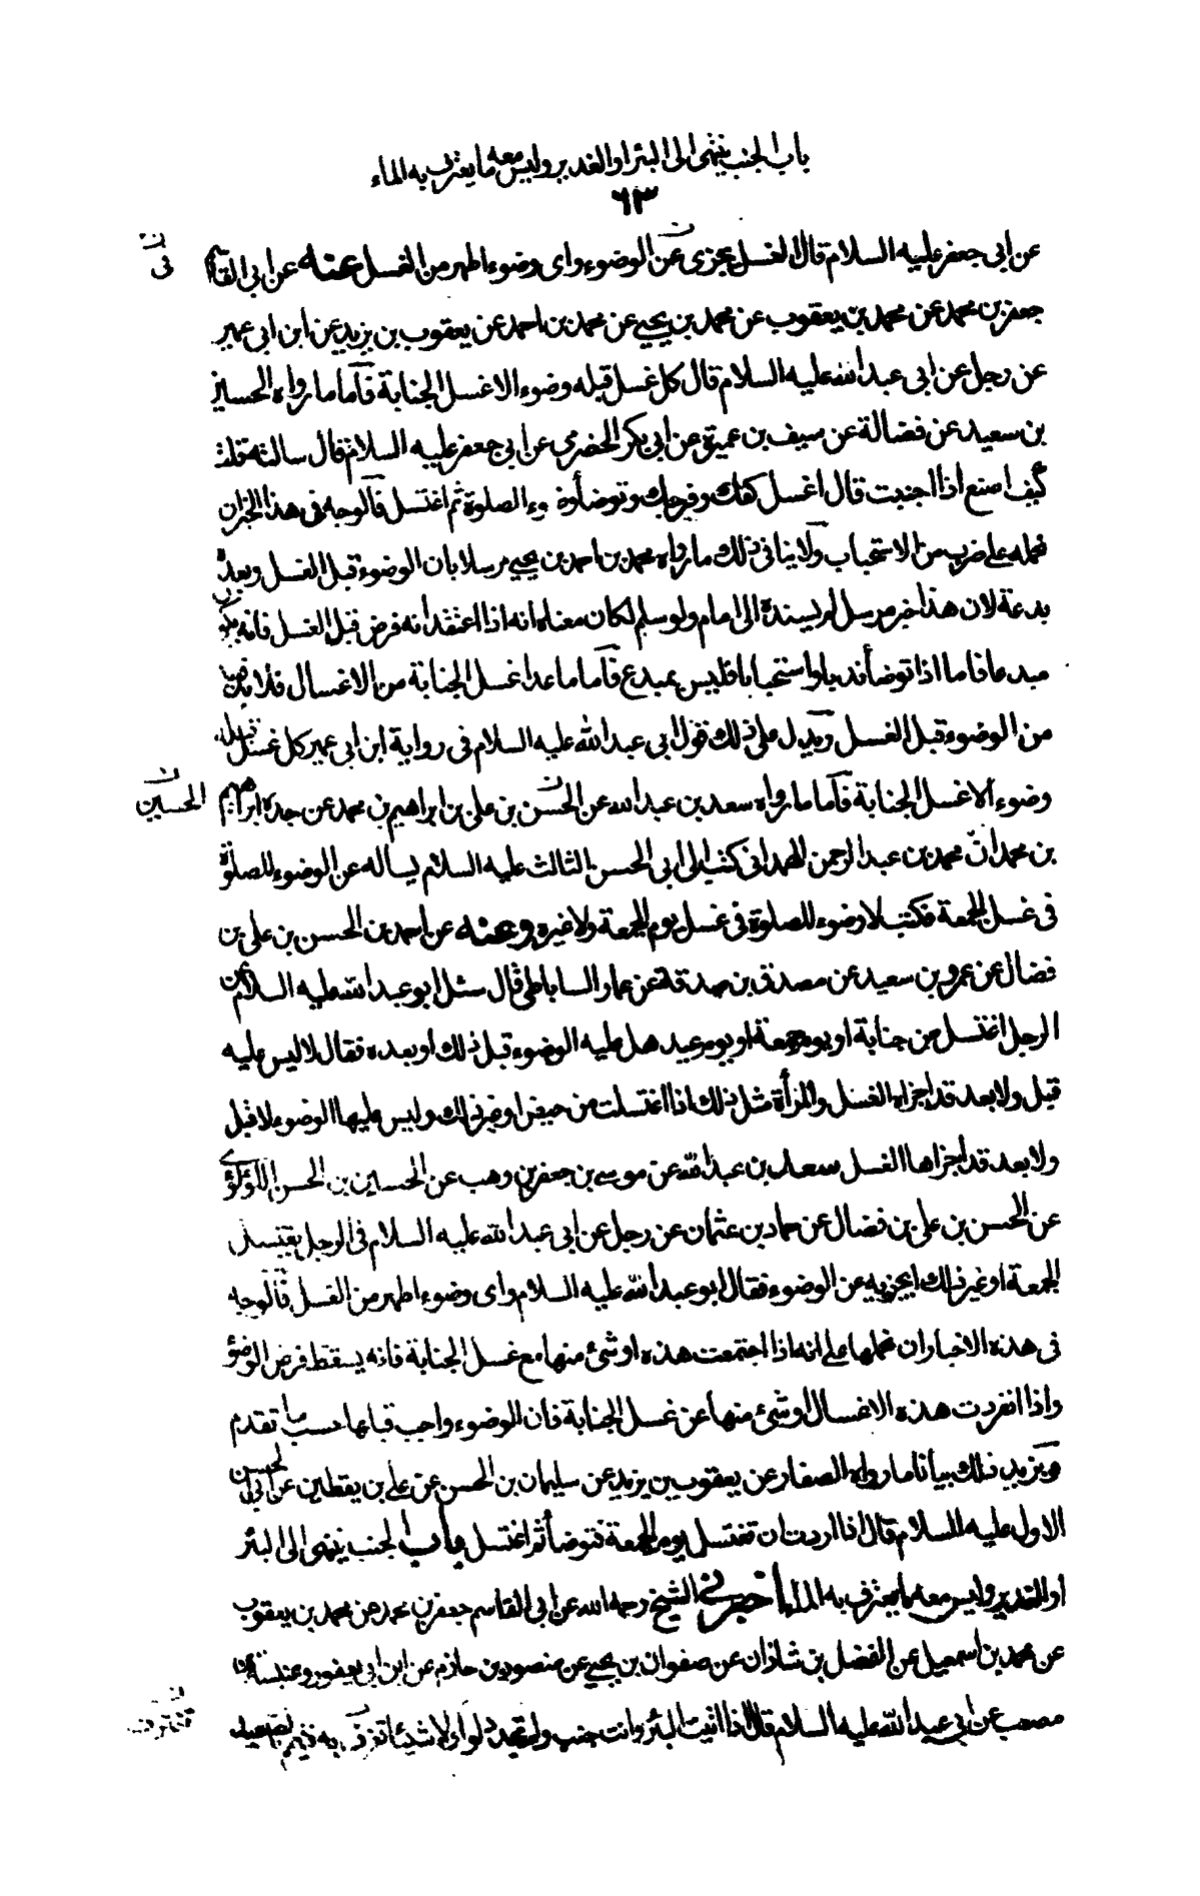 باب الجنب ينتهى الى البئر او الغدير وليس معه ما يغترف به الماء
٦٣
عن ابى جعفر عليه السلام قال الغسل يجزى عن الوضوء واى وضوء اطهر من الغسل عنه عن ابى القاسم
ن
فى
جعفر بن محمد عن محمد بن يعقوب عن محمد بن يحيى عن محمد بن احمد عن يعقوب بن يزيد عن ابن ابى عمير
عن رجل عن ابى عبد الله عليه السلام قال كل غسل قبله وضوء الا غسل الجنابة فاما ما رواه الحسين
بن سعيد عن فضالة عن سيف بن عميرة عن ابى بكر الحضرمى عن ابى جعفر عليه السلام قال سالته قلت
كيف اصنع اذا اجنبت قال اغسل كفك وفرجك وتوضأ وضوء الصلوة ثم اغتسل فالوجه فى هذا الخبر ان
نحمله على ضرب من الاستحباب ولا ينافى ذلك ما رواه محمد بن احمد بن يحيى مرسلا بان الوضوء قبل الغسل وبعده
بدعة لان هذا خبر مرسل لم يسنده الى امام ولو سلم لكان معناه انه اذا اعتقد انه فرض قبل الغسل فانه يكون
مبدعا فاما اذا توضأ ندبا واستحبابا فليس بمبدع فاما ما عدا غسل الجنابة من الاغسال فلا بد فيها
من الوضوء قبل الغسل ويدل على ذلك قول ابى عبد الله عليه السلام فى رواية ابن ابى عمير كل غسل قبله
وضوء الا غسل الجنابة فاما ما رواه سعد بن عبد الله عن الحسن بن على بن ابراهيم بن محمد عن جده ابراهيم
ن
الحسين
بن محمد ان محمد بن عبد الرحمن الهمدانى كتب الى ابى الحسن الثالث عليه السلام يساله عن الوضوء للصلوة
فى غسل الجمعة فكتب لا وضوء للصلوة فى غسل يوم الجمعة ولا غيره وعنه عن احمد بن الحسن بن على بن
فضال عن عمرو بن سعيد عن مصدق بن صدقة عن عمار الساباطى قال سئل ابو عبد الله عليه السلام عن
الرجل اغتسل من جنابة او يوم جمعة او يوم عيد هل عليه الوضوء قبل ذلك او بعده فقال لا ليس عليه
قبل ولا بعد قد اجزاه الغسل والمرأة مثل ذلك اذا اغتسلت من حيض او غير ذلك وليس عليها الوضوء لا قبل
ولا بعد قد اجزاها الغسل سعد بن عبد الله عن موسى بن جعفر بن وهب عن الحسين بن الحسن اللؤلؤى
عن الحسن بن على بن فضال عن حماد بن عثمان عن رجل عن ابى عبد الله عليه السلام فى الرجل يغتسل
الجمعة او غير ذلك ايجزيه عن الوضوء فقال ابو عبد الله عليه السلام واى وضوء اطهر من الغسل فالوجه
فى هذه الاخبار ان نحملها على انه اذا اجتمعت هذه او شئ منها مع غسل الجنابة فانه يسقط فرض الوضوء
واذا انفردت هذه الاغسال او شئ منها عن غسل الجنابة فان الوضوء واجب قبلها حسب ما تقدم
ويزيد ذلك بيانا ما رواه الصفار عن يعقوب بن يزيد عن سليمان بن الحسن عن على بن يقطين عن ابى الحسن
الاول عليه السلام قال اذا اردت ان تغتسل يوم الجمعة فتوضأ ثم اغتسل باب الجنب ينتهى الى البئر
او الغدير وليس معه ما يغترف به الماء اخبرنى الشيخ رحمه الله عن ابى القاسم جعفر بن محمد عن محمد بن يعقوب
عن محمد بن اسمعيل عن الفضل بن شاذان عن صفوان بن يحيى عن منصور بن حازم عن ابن ابى يعفور وعنبسة بن
مصعب عن ابى عبد الله عليه السلام قال اذا اتيت البئر وانت جنب ولم تجد دلوا ولا شيئا تغرف به فتيمم بالصعيد
ن